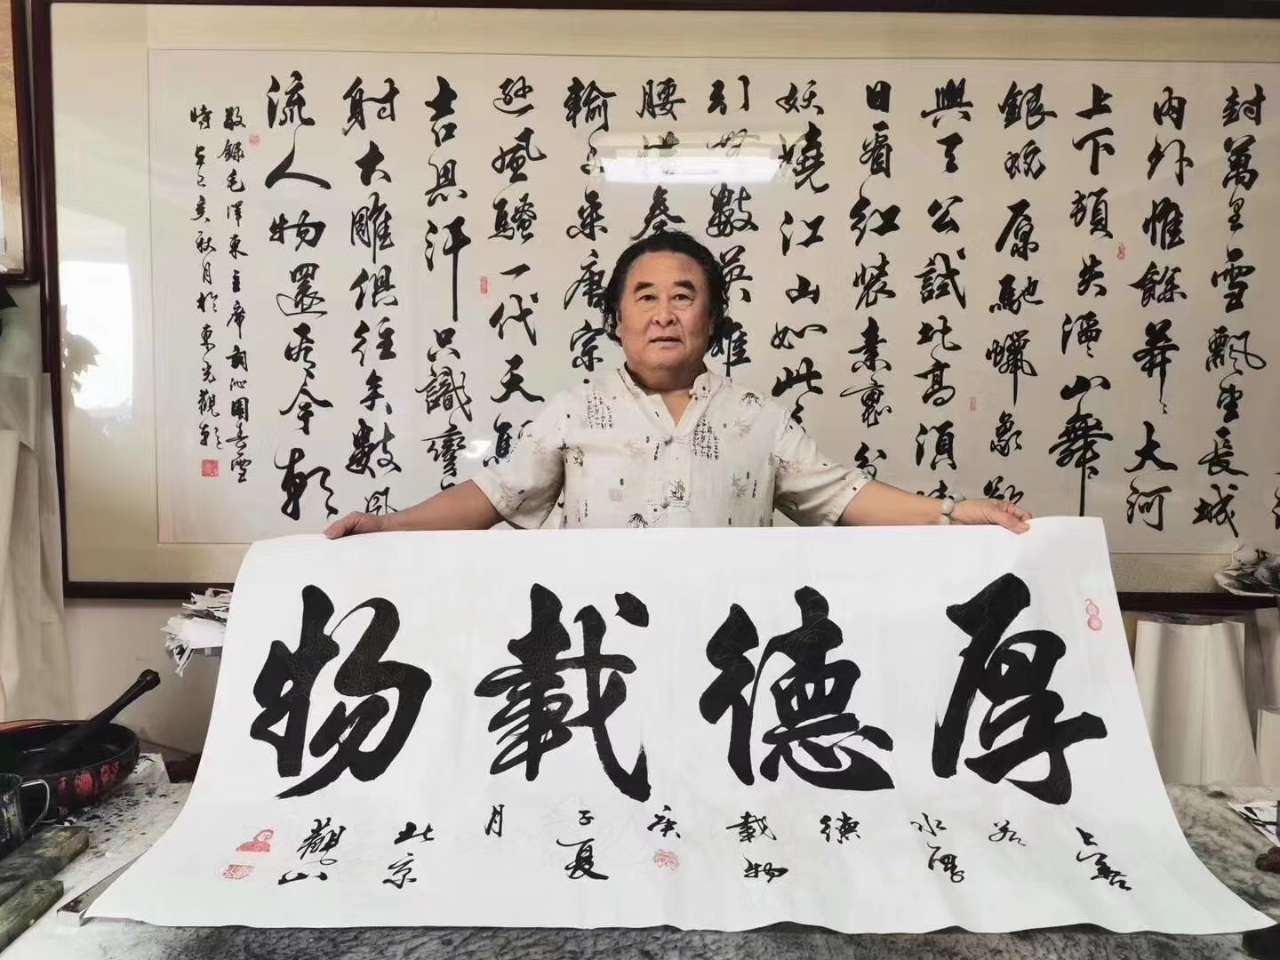 封萬里雪飄望長城
内外惟餘莽〻大河
上下頓失滔〻山舞
銀蛇原馳蠟象欲
與天公試比高須晴
日看紅裝素裹分
妖嬈江山如此
引無數英雄
腰惜秦
輸文采唐宗
遜風騷一代天驕
吉思汗只識彎
射大雕俱往矣數風
流人物還看今朝
敬錄毛澤東主席詞沁園春雪
時在己亥秋月於東光
厚德載物
上善若水厚德載物庚子夏月北京觀山